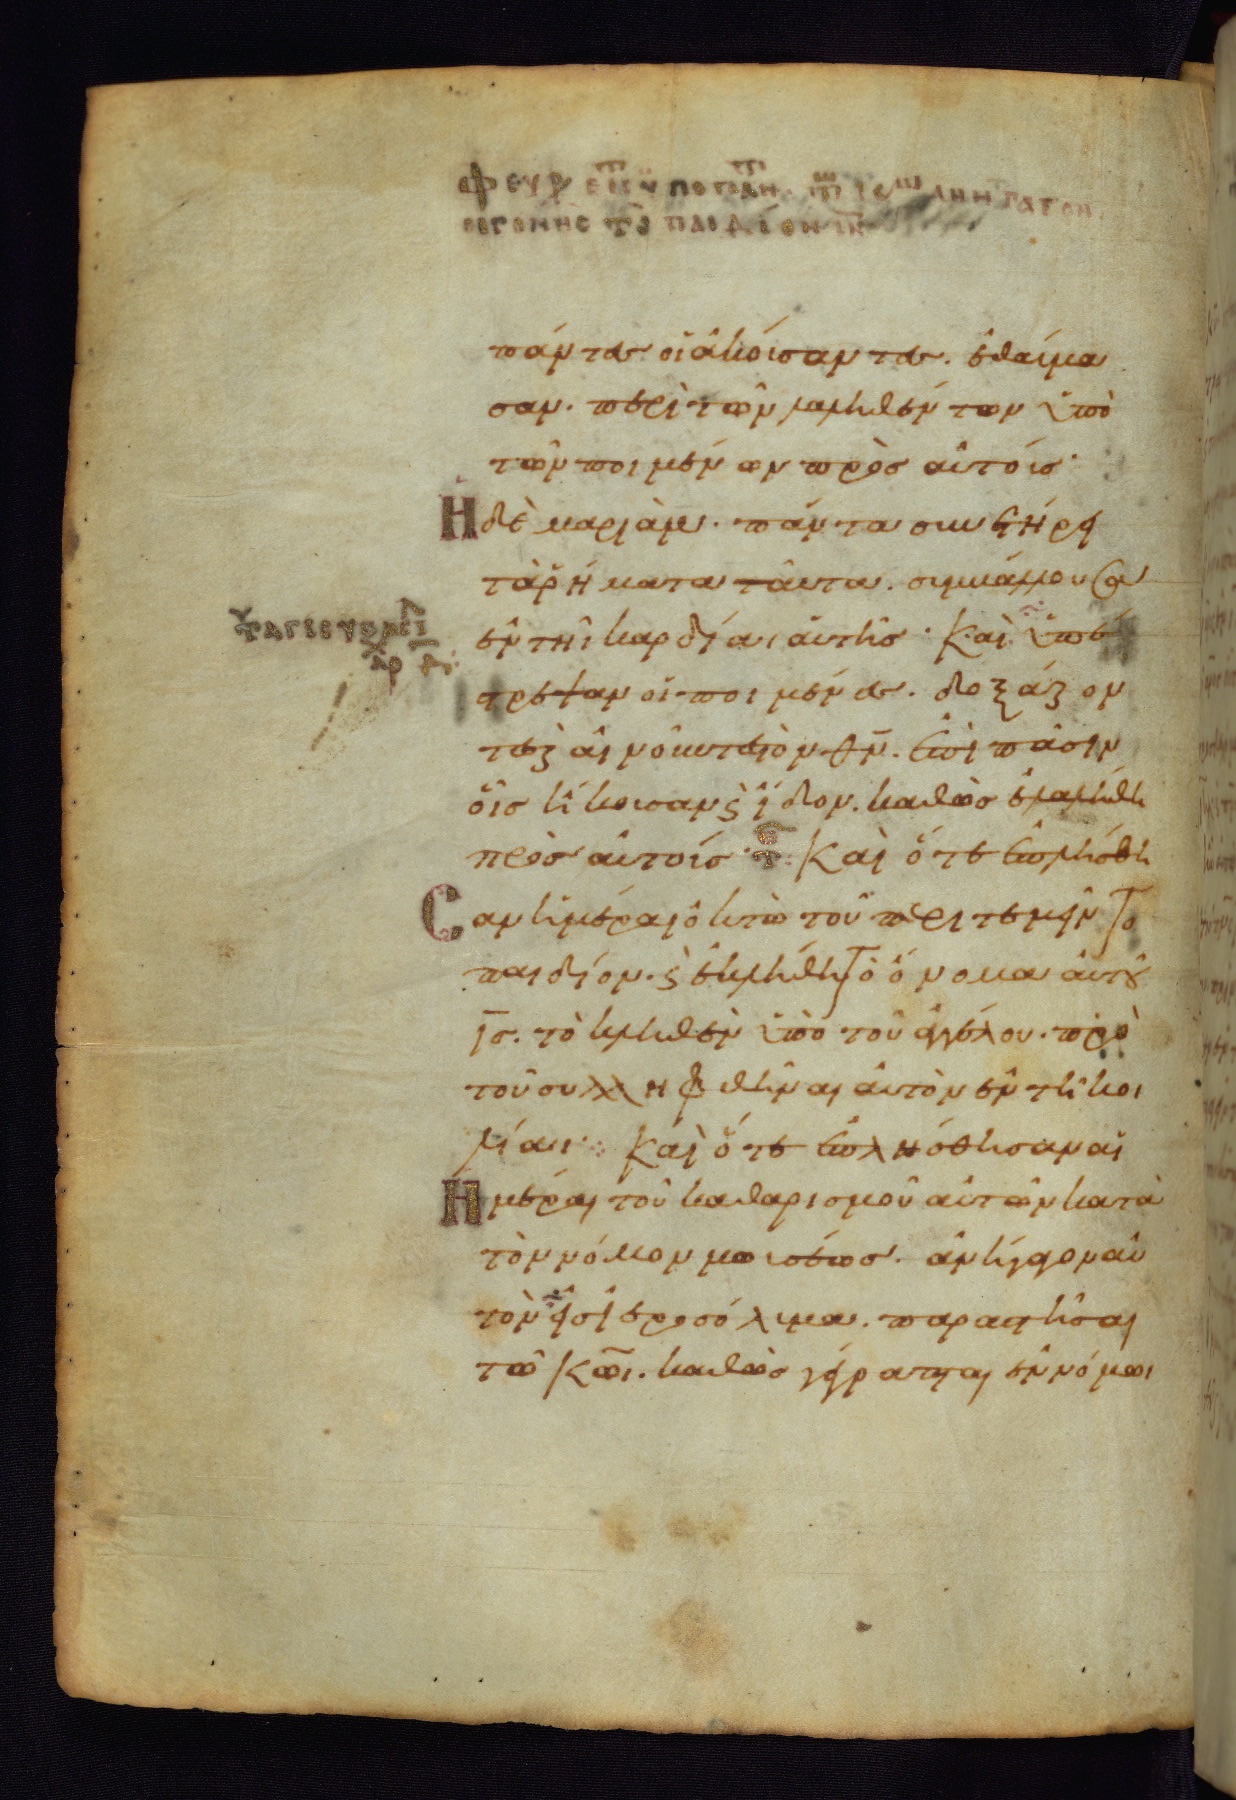 πάντες οἱ ἀκούσαντες. ἐθαύμα
σαν. περὶ τῶν λαληθέντων ὑπὸ
τῶν ποιμένων πρὸς αὐτούς·
Ἡ δὲ μαριὰμ. πάντα συνετήρει
τὰ ῥήματα ταῦτα. συμβάλλουσα
ἐν τῆι καρδίαι αὐτῆς· Καὶ ὑπέ
στρεψαν οἱ ποιμένες. δοξάζον
τες καὶ αἰνοῦντες τὸν θν. ἐπὶ πᾶσιν
οἷς ἤκουσαν καὶ ἴδον. καθὼς ἐλαλήθη
πρὸς αὐτούς· Καὶ ὅτε ἐπλήσθη
σαν ἡμέραι ὀκτὼ τοῦ περιτεμεῖν τὸ
παιδίον. καὶ ἐκλήθη τὸ ὄνομα αὐτοῦ
ις. τὸ κληθὲν ὑπὸ τοῦ ἀγγέλου. πρὸ
τοῦ συλληφθῆναι αὐτὸν ἐν τῆ κοι
λίαι· Καὶ ὅτε ἐπλήσθησαν αἱ
Ἡμέραι τοῦ καθαρισμοῦ αὐτῶν κατὰ
τὸν νόμον μωυσέως. ἀνήγαγον αὐ
τὸν εἰς ἱεροσόλυμα. παραστῆσαι
τῶ κωι. καθὼς γέγραπται ἐν νόμωι